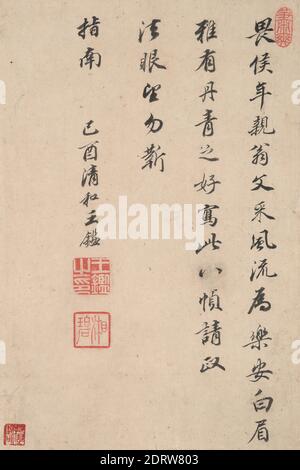 畏侯年親翁文采風流為樂安白眉
雅有丹青之好寫此八幀請政
法眼望勿靳
指南
己酉清和王鑑
湘碧
alamy
Image ID: 2DRW803
www.alamy.com